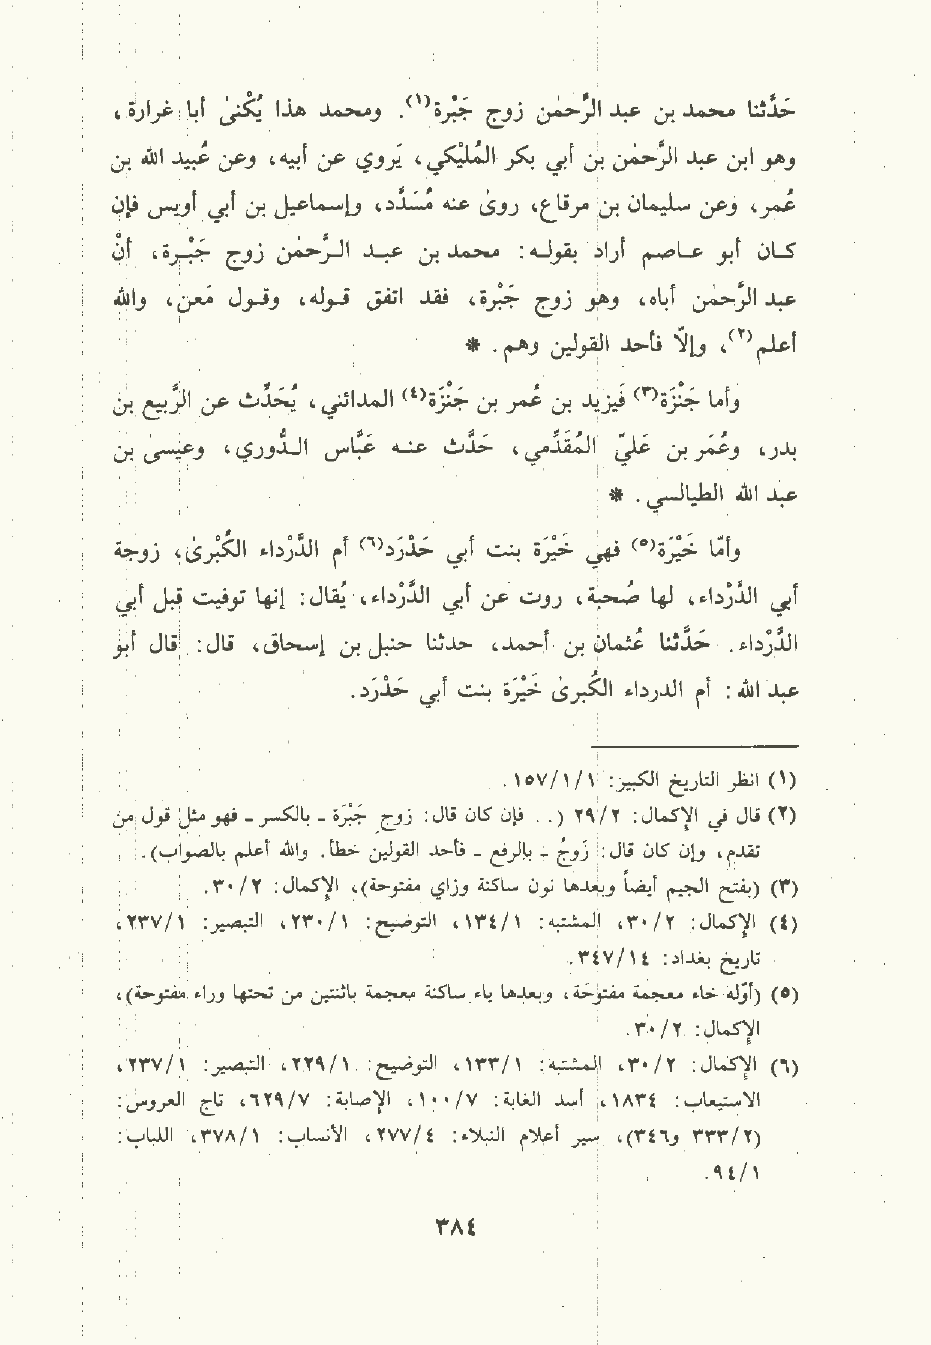 حَدَّثنا محمد بن عبد الرَّحمٰن زوج جَبْرة(١). ومحمد هذا يُكْنىٰ أبا غرارة،
وهو ابن عبد الرَّحمٰن بن أبي بكر المُلَيْكي، يَروي عن أبيه، وعن عُبيد الله بن
عُمر، وعن سليمان بن مرقاع، روىٰ عنه مُسَدَّد، وإسماعيل بن أبي أويس فإن
كان أبو عاصم أراد بقوله: محمد بن عبد الرَّحمٰن زوج جَبْرة، أنْ
عبد الرَّحمٰن أباه، وهو زوج جَبْرة، فقد اتفق قوله، وقول مَعن، والله
أعلم(٢)، وإلاّ فأحد القولين وهم. *
وأما جَنْزَة(٣) فيَزيد بن عُمر بن جَنْزَة(٤) المدائني، يُحَدِّث عن الرَّبيع بن
بدر، وعُمَر بن عَليّ المُقَدَّمي، حَدَّث عنه عَبَّاس الدُّوري، وعيسىٰ بن
عبد الله الطيالسي. *
وأمّا خَيْرَة(٥) فهي خَيْرَة بنت أبي حَدْرَد(٦) أم الدَّرْداء الكُبْرىٰ، زوجة
أبي الدَّرْداء، لها صُحبة، روت عن أبي الدَّرْداء، يُقال: إنها توفيت قبل أبي
الدَّرْداء. حَدَّثنا عُثمان بن أحمد، حدثنا حنبل بن إسحاق، قال: قال أبو
عبد الله: أم الدرداء الكُبرىٰ خَيْرَة بنت أبي حَدْرَد.
(١) انظر التاريخ الكبير: ١/١/١٥٧.
(٢) قال في الإكمال: ٢/٢٩ (.. فإن كان قال: زوجِ جَبْرَة - بالكسر - فهو مثل قول من
تقدم، وإن كان قال: زوجُ - بالرفع - فأحد القولين خطأ. والله أعلم بالصواب).
(٣) (بفتح الجيم أيضاً وبعدها نون ساكنة وزاي مفتوحة)، الإكمال: ٢/٣٠.
(٤) الإكمال: ٢/٣٠، المشتبه: ١/١٣٤، التوضيح: ١/٢٣٠، التبصير: ١/٢٣٧،
تاريخ بغداد: ١٤/٣٤٧.
(٥) (أوّله خاء معجمة مفتوحَة، وبعدها ياء ساكنة معجمة باثنتين من تحتها وراء مفتوحة)،
الإكمال: ٢/٣٠.
(٦) الإكمال: ٢/٣٠، المشتبه: ١/١٣٣، التوضيح: ١/٢٢٩، التبصير: ١/٢٣٧،
الاستيعاب: ١٨٣٤، أسد الغابة: ٧/١٠٠، الإصابة: ٧/٦٢٩، تاج العروس:
(٢/٣٣٣ و٣٤٦)، سير أعلام النبلاء: ٤/٢٧٧، الأنساب: ١/٣٧٨، اللباب:
١/٩٤.
٣٨٤